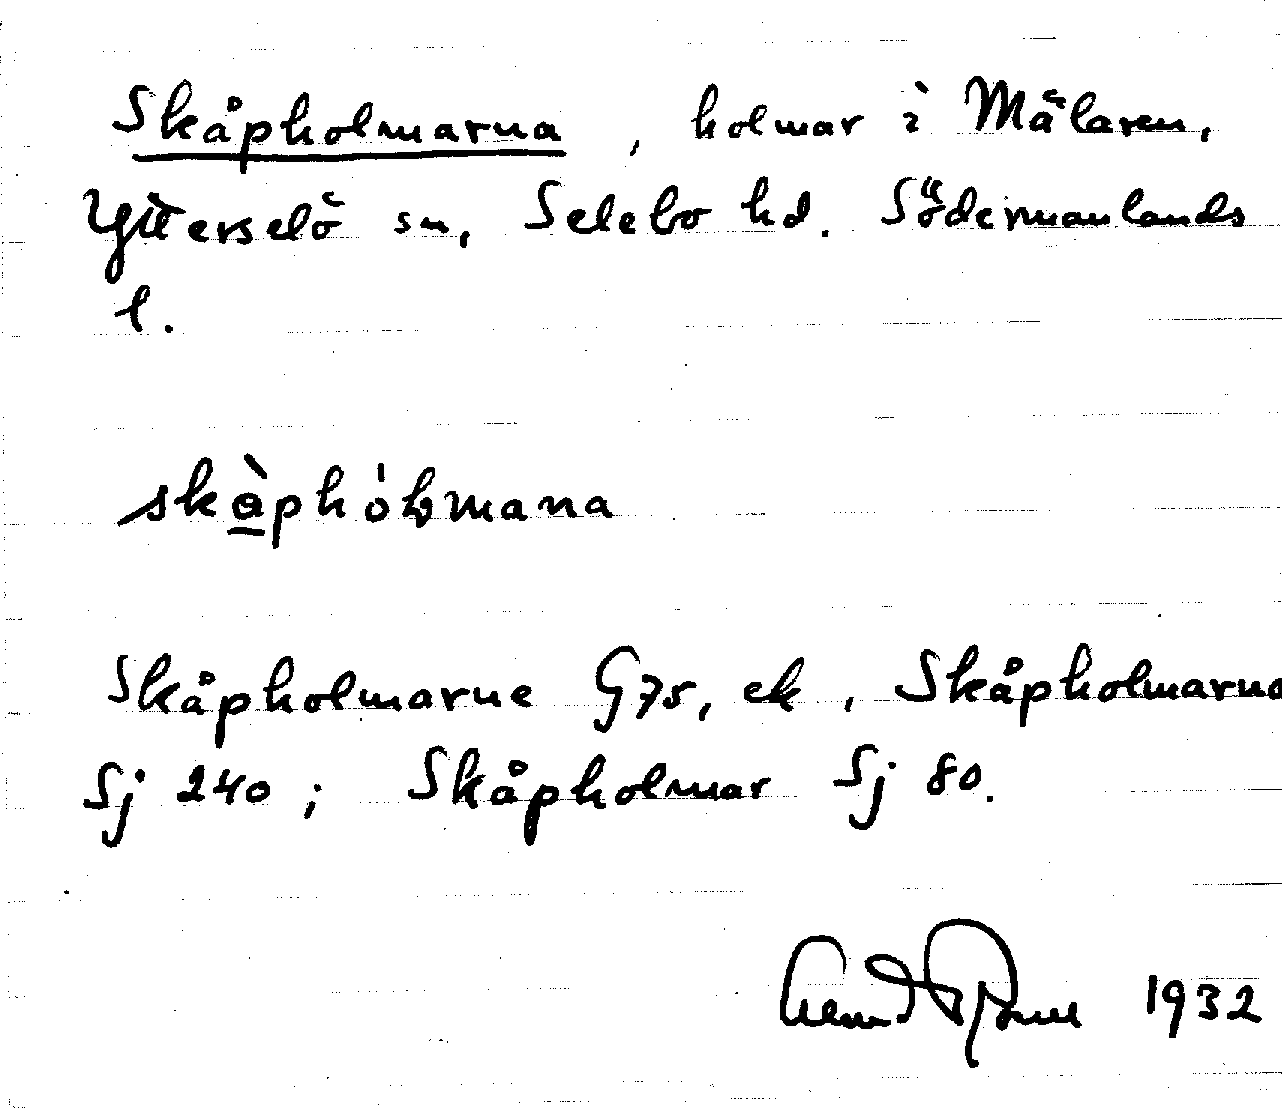 Skåpholmarna, holmar i Mälaren,
Ytterselö sn, Selebo hd. Södermanlands
l.
skå̀phólmana
Skåpholmarne G75, ek, Skåpholmarna
Sj 240; Skåpholmar Sj 80.
1932